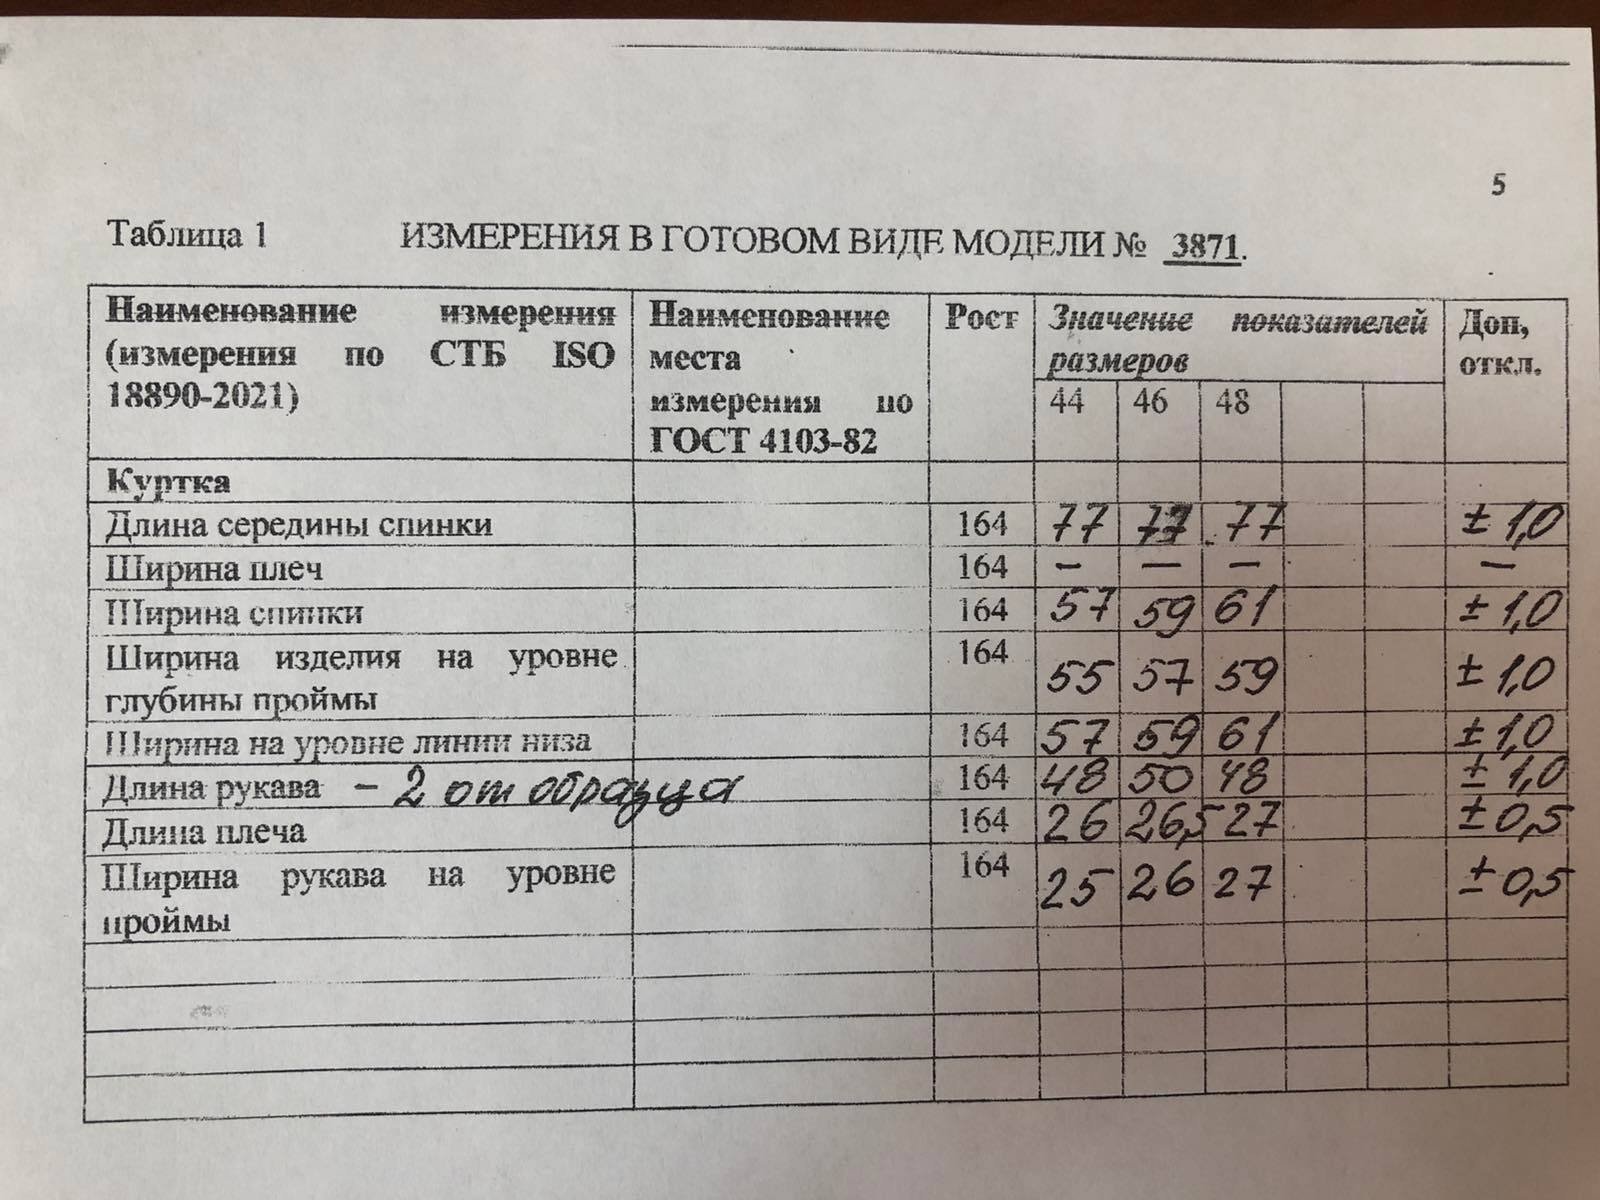 5
Таблица 1 ИЗМЕРЕНИЯ В ГОТОВОМ ВИДЕ МОДЕЛИ № 3871.
Наименование измерения (измерения по СТБ ISO 18890-2021) Наименование места измерения по ГОСТ 4103-82 Рост Значение показателей размеров Доп, откл.
44 46 48
Куртка
Длина середины спинки 164 77 77 77 ± 1,0
Ширина плеч 164 – – – –
Ширина спинки 164 57 59 61 ± 1,0
Ширина изделия на уровне глубины проймы 164 55 57 59 ± 1,0
Ширина на уровне линии низа 164 57 59 61 ± 1,0
Длина рукава – 2 от образца 164 48 50 48 ± 1,0
Длина плеча 164 26 26,5 27 ± 0,5
Ширина рукава на уровне проймы 164 25 26 27 ± 0,5